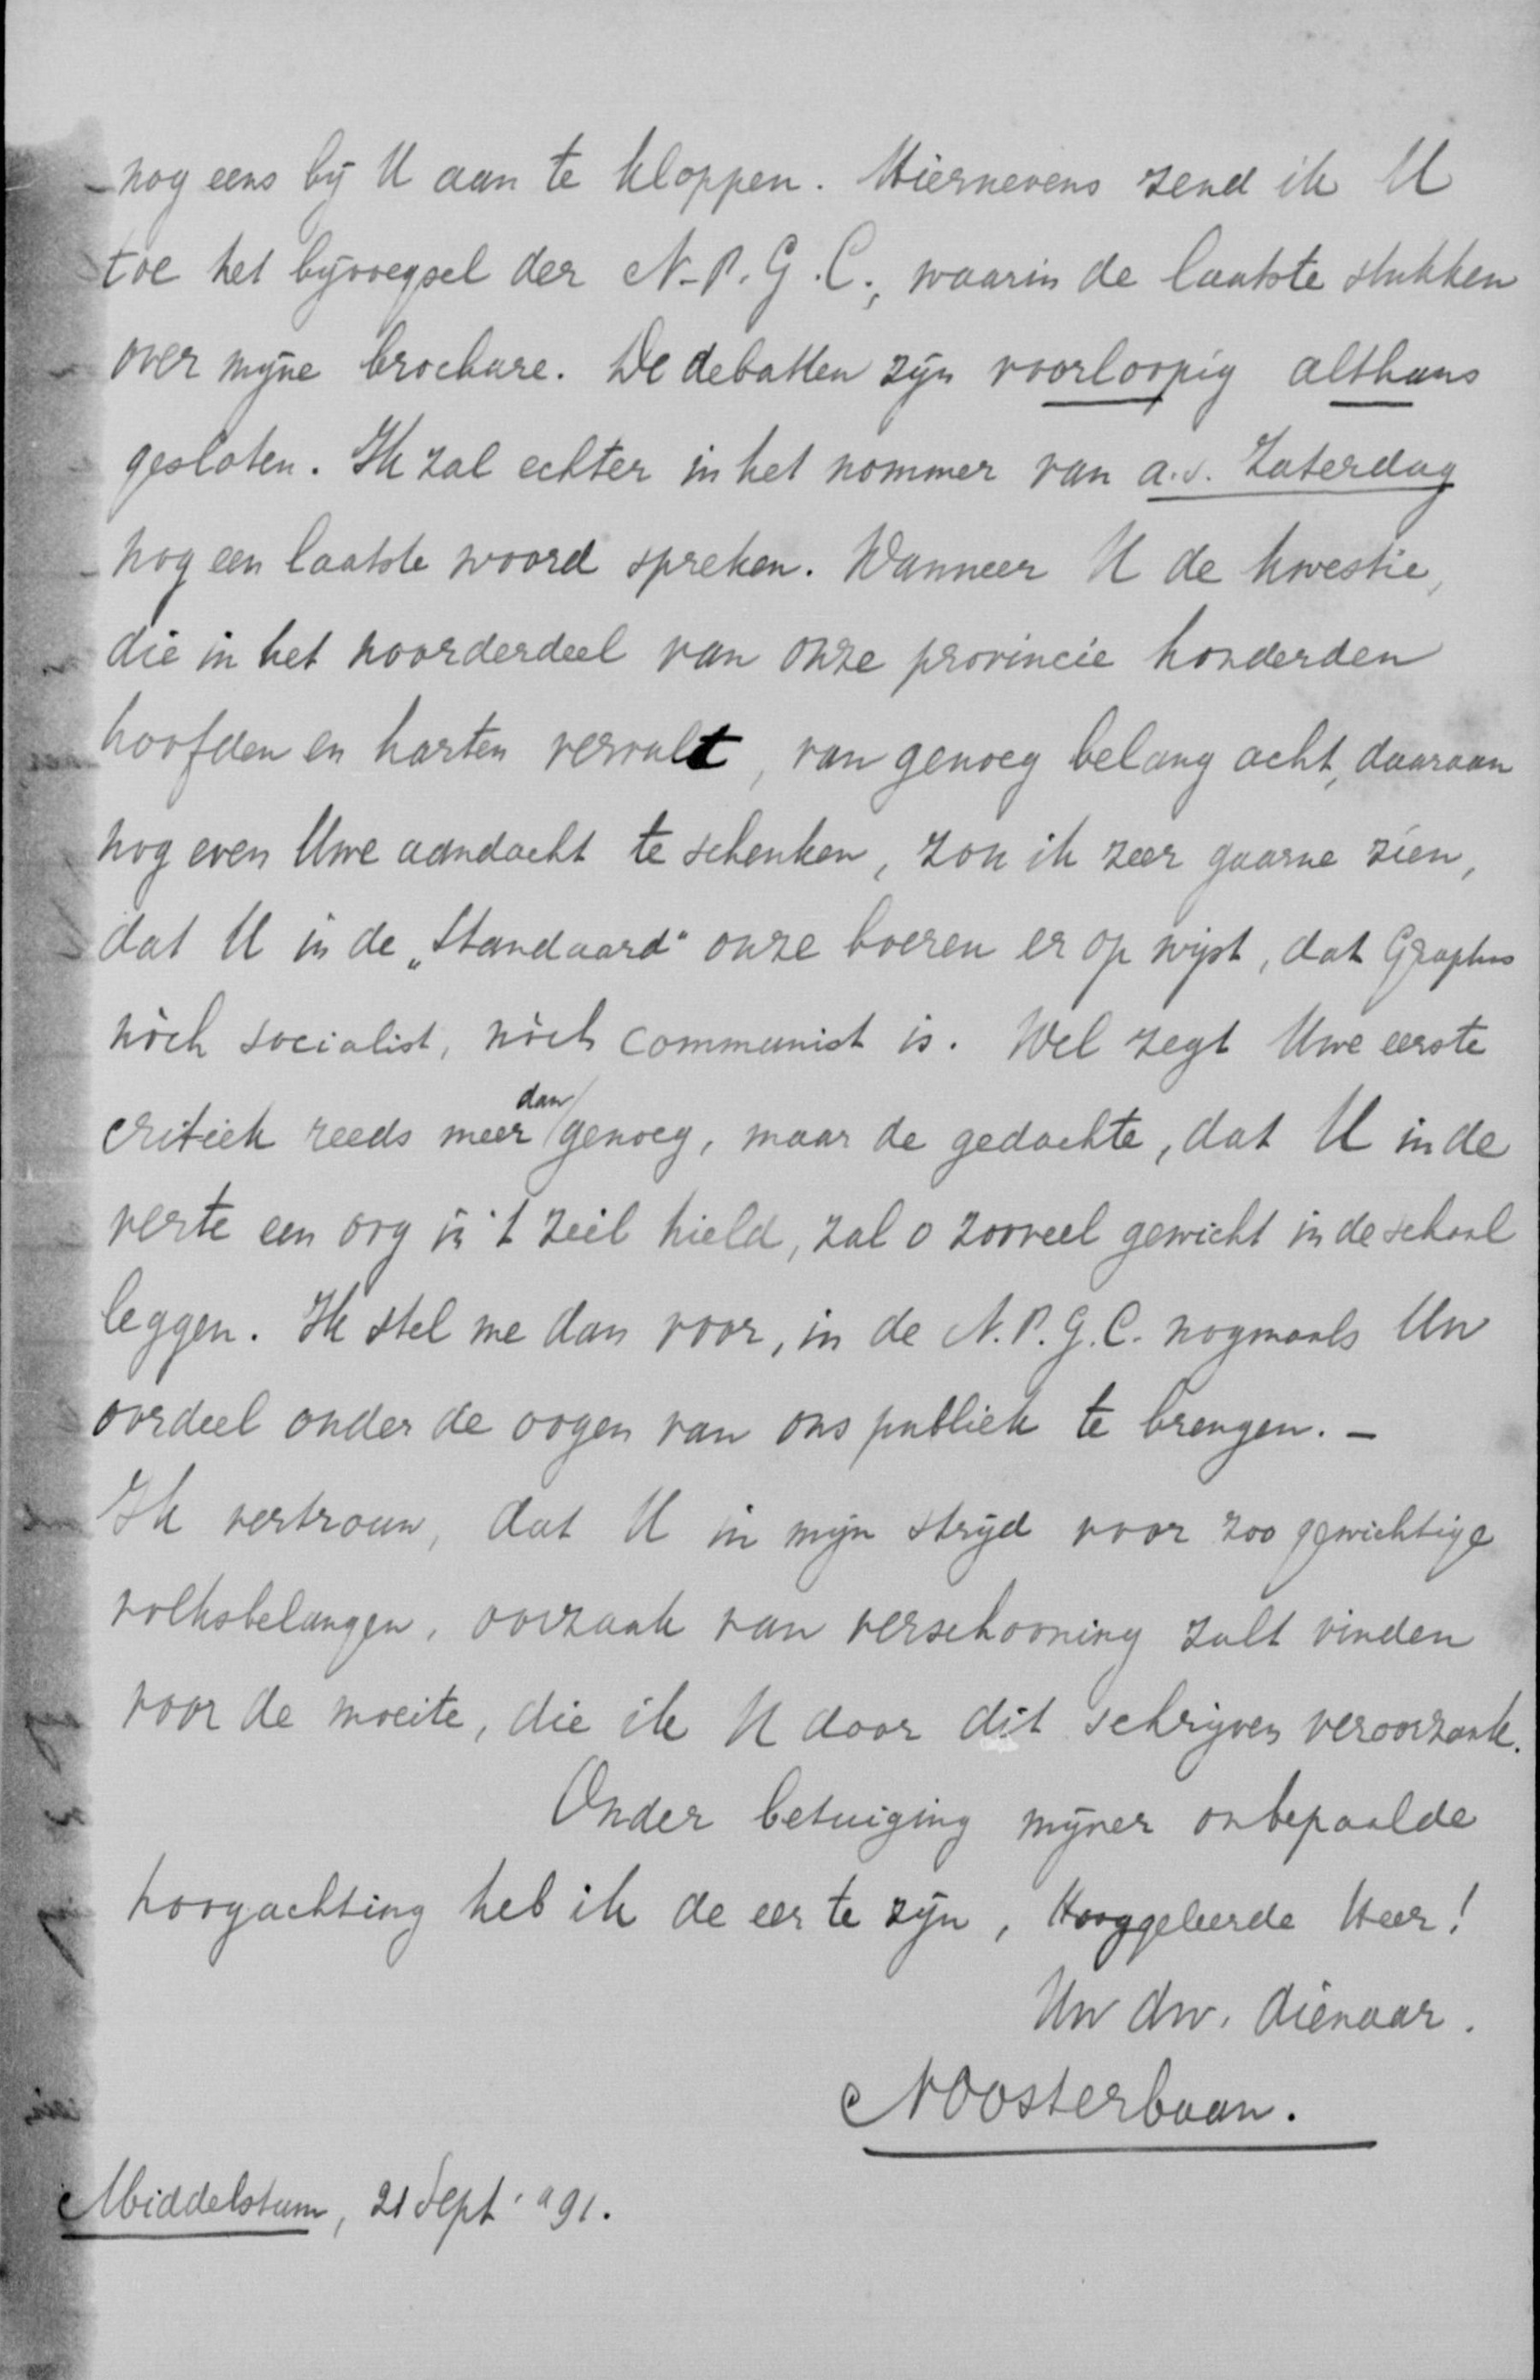 nog eens bij U aan te kloppen. Hiernevens zend ik U
toe het bijvoegsel der N.P.G.C., waarin de laatste stukken
over mijne brochure. De debatten zijn voorloopig althans
gesloten. Ik zal echter in het nommer van a.s. Zaterdag
nog een laatste woord spreken. Wanneer U de kwestie,
die in het noorderdeel van onze provincie honderden
hoofden en harten vervult, van genoeg belang acht, daaraan
nog even Uwe aandacht te schenken, zou ik zeer gaarne zien,
dat U in de „Standaard" onze boeren er op wijst, dat Graphus
nòch socialist, nòch communist is. Wel zegt Uwe eerste
critiek reeds meer dan genoeg, maar de gedachte, dat U in de
verte een oog in 't zeil hield, zal o zooveel gewicht in de schaal
leggen. Ik stel me dan voor, in de N.P.G.C. nogmaals Uw
oordeel onder de oogen van ons publiek te brengen. –
Ik vertrouw, dat U in mijn strijd voor zoo gewichtige
volksbelangen, oorzaak van verschooning zult vinden
voor de moeite, die ik U door dit schrijven veroorzaak.
Onder betuiging mijner onbepaalde
hoogachting heb ik de eer te zijn, Hooggeleerde Heer!
Uw dw. dienaar.
NOosterbaan.
Middelstum, 21 Sept. '91.